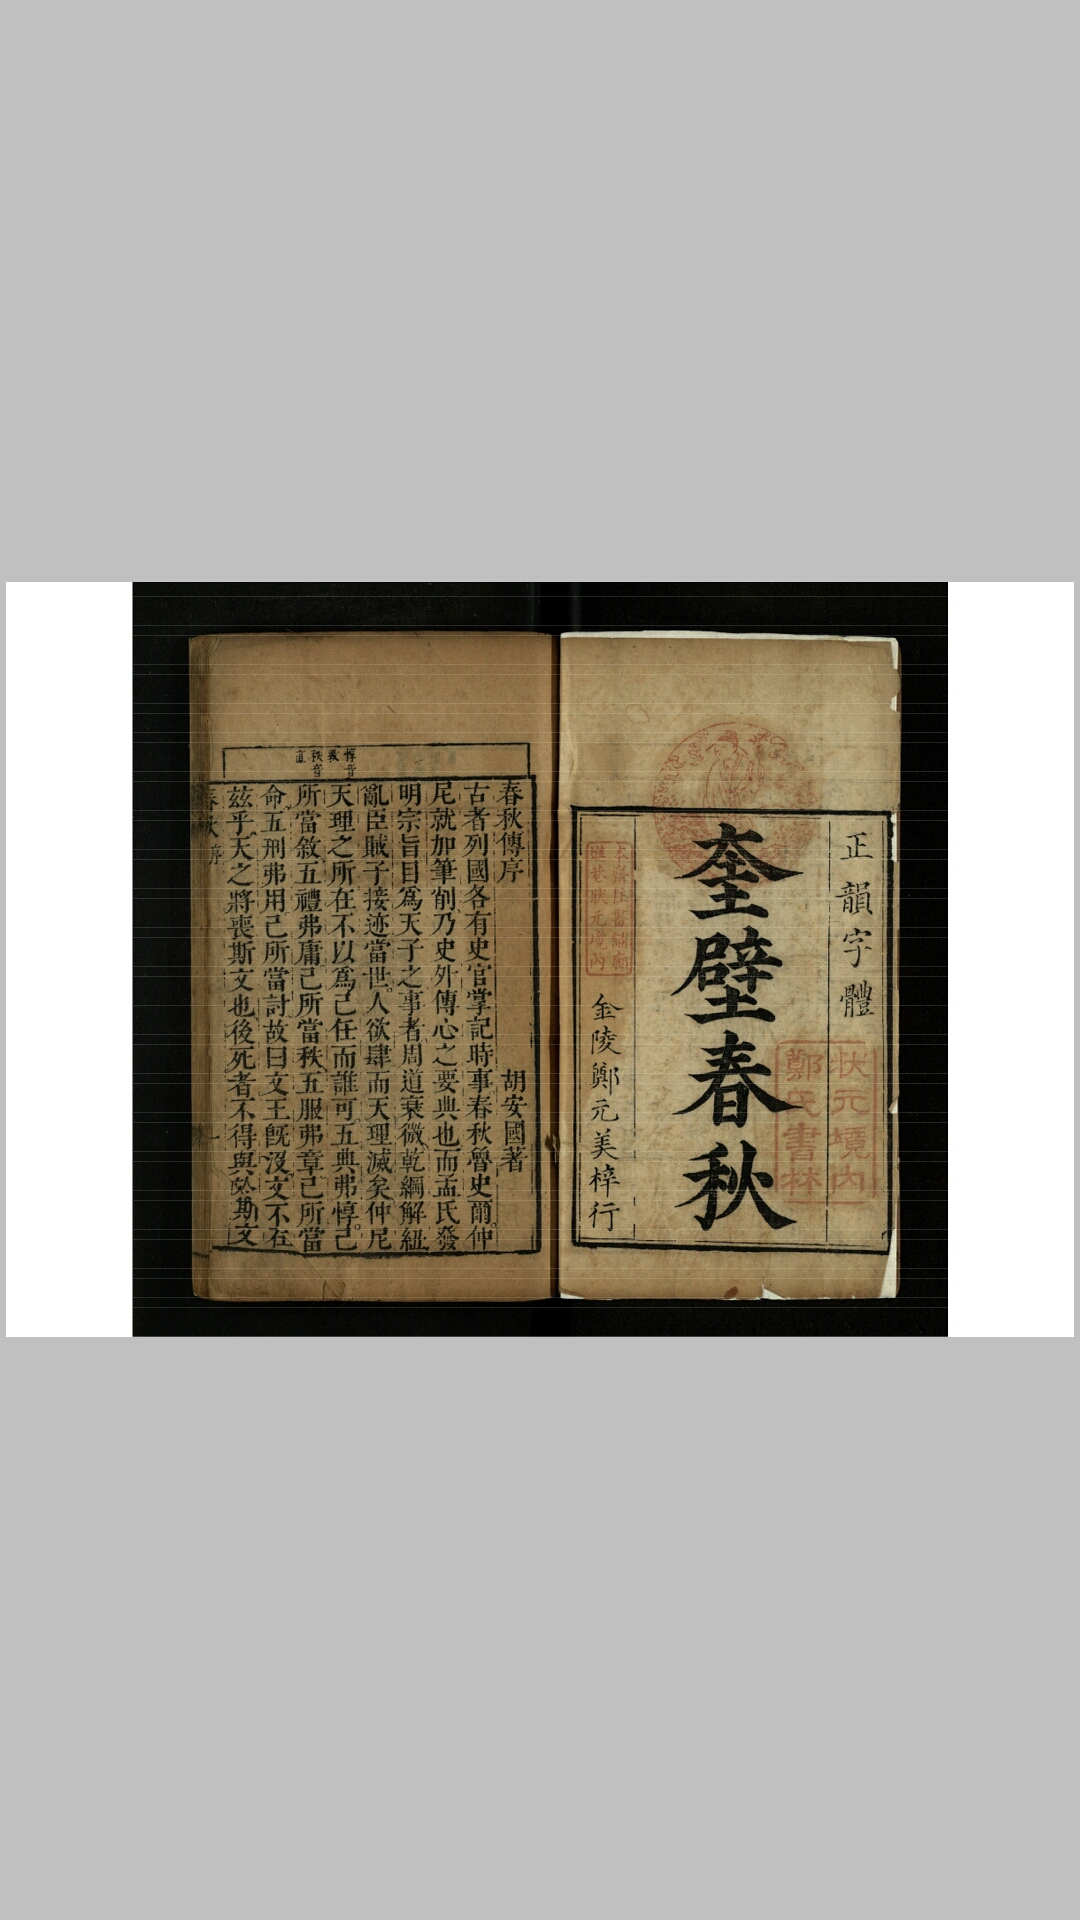 正韻字體
奎璧春秋
金陵鄭元美梓行
狀元境內
鄭氏書林
本齋住書舖廊
狀元境內
惇音
秩音
直
春秋傳序
胡安國著
古者列國各有史官掌記時事春秋魯史爾仲
尼就加筆削乃史外傳心之要典也而孟氏發
明宗旨目爲天子之事者周道衰微乾綱解紐
亂臣賊子接迹當世人欲肆而天理滅矣仲尼
天理之所在不以爲己任而誰可五典弗惇己
所當敘五禮弗庸己所當秩五服弗章己所當
命五刑弗用己所當討故曰文王旣沒文不在
茲乎天之將喪斯文也後死者不得與於斯文
春秋序
一